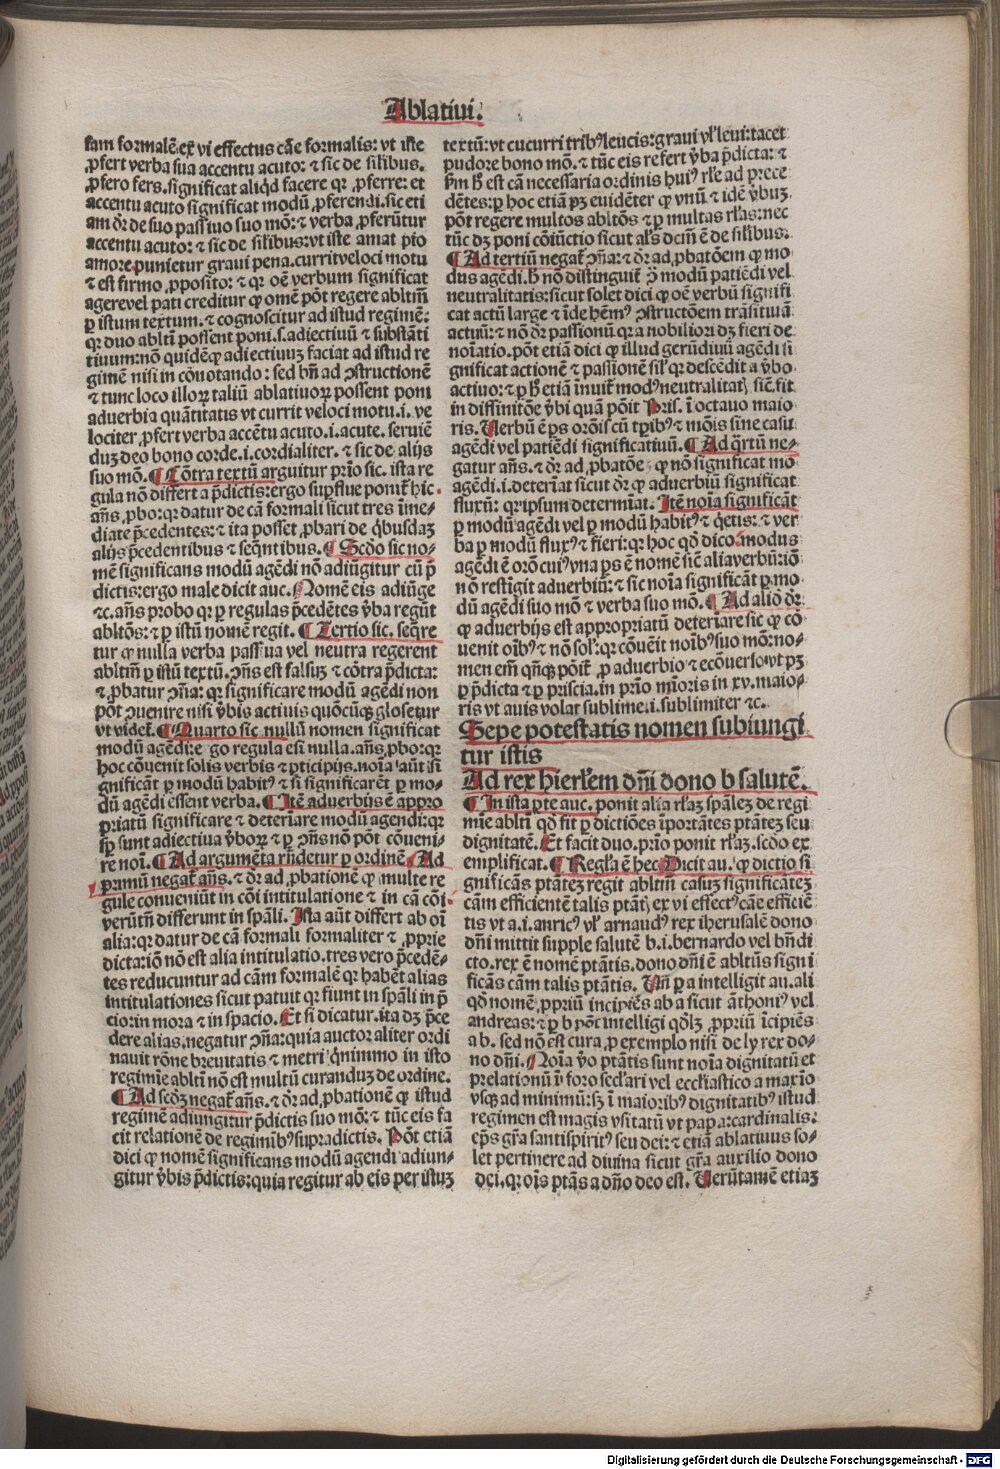 Ablatiui.
sam formalē.ex vi effectus cāe formalis: vt iste
ꝓfert verba sua accentu acuto: ⁊ sic de silibus.
ꝓfero fers.significat aliqd facere qꝛ ꝓferre: et
accentu acuto significat modū ꝓferendi.sic eti
am dr̄ de suo passiuo suo mō: ⁊ verba ꝓferūtur
accentu acuto: ⁊ sic de silibus:vt iste amat pio
amore.punietur graui pena.curritveloci motu
⁊ est firmo ꝓposito: ⁊ qꝛ oē verbum significat
agerevel pati creditur ꝙ omē pōt regere abltm̄
ꝑ istum textum.⁊ cognoscitur ad istud regimē:
qꝛ duo abltī possent poni.s.adiectiuū ⁊ substāti
tiuum:nō quidēꝙ adiectiuuꝫ faciat ad istud re
gimē nisi in cōnotando: sed bn̄ ad ꝯstructionē
⁊ tunc loco illoꝝ taliū ablatiuoꝝ possent poni
aduerbia quātitatis vt currit veloci motu.i. ve
lociter ꝓfert verba accētu acuto.i.acute. seruiē
duꝫ deo bono corde.i.cordialiter. ⁊ sic de alijs
suo mō. ¶ Cōtra textū arguitur prīo sic. ista re
gula nō differt a p̄dictis:ergo suꝑflue ponit̄ hic
an̄s ꝓbo:qꝛ datur de cā formali sicut tres īme-
diate p̄cedentes: ⁊ ita posset ꝓbari de q̄busdaꝫ
alijs p̄cedentibus ⁊ seq̄ntibus. ¶ Scdo sic no-
mē significans modū agēdi nō adiūgitur cū p̄
dictis:ergo male dicit auc. Nomē eis adiūge
⁊c.an̄s probo qꝛ ꝑ regulas p̄cedētes ꝟba regūt
abltōs: ⁊ ꝑ istū nomē regit. ¶ Tertio sic. seq̄re
tur ꝙ nulla verba passiua vel neutra regerent
abltm̄ ꝑ istū textū.ꝯn̄s est falsuꝫ ⁊ cōtra p̄dicta:
⁊ ꝓbatur ꝯn̄a: qꝛ significare modū agēdi non
pōt ꝯuenire nisi ꝟbis actiuis quōcūqꝫ glosetur
vt videt̄. ¶ Quarto sic nullū nomen significat
modū agēdi:ergo regula est nulla.an̄s ꝓbo:qꝛ
hoc cōuenit solis verbis ⁊ ꝑticipijs.noīa aūt si
gnificāt ꝑ modū habitꝰ ⁊ si significarēt ꝑ mo-
dū agēdi essent verba. ¶ Itē aduerbijs ē appro
priatū significare ⁊ deteriare modū agendi:qꝛ
ip̄a sunt adiectiua ꝟboꝝ ⁊ ꝑ ꝯn̄s nō pōt cōueni-
re noī. ¶ Ad argumēta rn̄detur ꝑ ordinē. Ad
primū negat̄ an̄s.⁊ dr̄ ad ꝓbationē ꝙ multe re
gule conueniūt in cōi intitulatione ⁊ in cā cōi
verūtn̄ differunt in sp̄ali. Ista aūt differt ab oī
alia:qꝛ datur de cā formali formaliter ⁊ ꝓprie
dicta:iō nō est alia intitulatio.tres vero p̄cedē-
tes reducuntur ad cām formalē qꝛ habēt alias
intitulationes sicut patuit qꝛ fiunt in sp̄ali in p̄
cio:in mora ⁊ in spacio. Et si dicatur.ita dꝫ p̄ce
dere alias.negatur ꝯn̄a:quia auctor aliter ordi
nauit rōne breuitatis ⁊ metri q̄nimmo in isto
regimīe abltī nō est multū curanduꝫ de ordine.
¶ Ad scdꝫ negat̄ an̄s.⁊ dr̄ ad ꝓbationē ꝙ istud
regimē adiungitur p̄dictis suo mō: ⁊ tūc eis fa
cit relationē de regimībꝰ supradictis. Pōt etiā
dici ꝙ nomē significans modū agendi adiun-
gitur ꝟbis p̄dictis:quia regitur ab eis per istuꝫ
textū: vt cucurri tribꝰ leucis: graui vl̓ leui: tacet
pudore bono mō. ⁊ tūc eis refert ꝟba p̄dicta: ⁊
ẜm ħ est cā necessaria ordinis huiꝰ rl̓e ad prece
dētes: ꝑ hoc etiā pꝫ euidēter ꝙ vnū ⁊ idē ꝟbuꝫ
pōt regere multos abltōs ⁊ ꝑ multas rl̓as: nec
tūc dꝫ poni cōiūctio sicut al̓s dcm̄ ē de silibus.
¶ Ad tertiū negat̄ ꝯn̄a: ⁊ dr̄ ad ꝓbatōem ꝙ mo
dus agēdi. ħ nō distinguit̄ ꝯ modū patiēdi vel
neutralitatis: sicut solet dici ꝙ oē verbū signifi
cat actū large ⁊ īde hēmꝰ ꝯstructōem trāsitiuā
actiuū: ⁊ nō dr̄ passionū qꝛ a nobiliori dꝫ fieri de
noīatio. pōt etiā dici ꝙ illud gerūdiuū agēdi si
gnificat actionē ⁊ passionē sil̓ qꝛ descēdit a ꝟbo
actiuo: ⁊ ꝑ ħ etiā īnuit̄ modꝰ neutralitatꝭ sic̄ fit
in diffinitōe ꝟbi quā pōit Pris. ī octauo maio
ris. Verbū ē ꝑs orōis cū tꝑibꝰ ⁊ mōis sine casu
agēdi vel patiēdi significatiuū. ¶ Ad q̄rtū ne-
gatur an̄s. ⁊ dr̄ ad ꝓbatōe ꝙ nō significat mo
agēdi.i. deteriat sicut dr̄ ꝙ aduerbiū significat
fluxū: qꝛ ipsum determīat. Itē noīa significāt
ꝑ modū agēdi vel ꝑ modū habitꝰ ⁊ q̄etis: ⁊ ver
ba ꝑ modū fluxꝰ ⁊ fieri: qꝛ hoc qd dico: modus
agēdi ē orō cuiꝰ vna ꝑs ē nomē sic̄ alia verbū: iō
nō restīgit aduerbiū: ⁊ sic noīa significāt ꝑ mo-
dū agēdi suo mō ⁊ verba suo mō. ¶ Ad aliō dr̄
ꝙ aduerbijs est appropriatū deteriare sic ꝙ cō
uenit oībꝰ ⁊ nō sol̓: qꝛ cōuēit noībꝰ suo mō: no-
men em̄ qn̄qꝫ pōit̄ ꝓ aduerbio ⁊ ecōuerso vt pꝫ
ꝑ p̄dicta ⁊ ꝑ priscia. in prīo mīoris in xv. maio-
ris vt auis volat sublime.i. sublimiter ⁊c.
Sepe potestatis nomen subiungi
tur istis
Ad rex hierl̓em dn̄i dono b salutē.
¶ In ista ꝑte auc. ponit alīa rl̓aꝫ sp̄alez de regi
mīe abltī qd fit ꝑ dictiōes īportātes ptātez seu
dignitatē. Et facit duo. prīo ponit rl̓aꝫ. scdo ex
emplificat. ¶ Regl̓a ē hec Dicit au. ꝙ dictio si
gnificās ptātez regit abltm̄ casuꝫ significātez
cām efficientē talis ptātꝭ ex vi effectꝰ cāe efficiē
tis vt a.i. anricꝰ vl̓ arnaudꝰ rex iherusalē dono
dn̄i mittit supple salutē b.i. bernardo vel bn̄di
cto. rex ē nomē ptātis. dono dn̄i ē abltūs signi
ficās cām talis ptātis. Vn̄ ꝑ a intelligit au. ali
qd nomē ꝓpriū incipiēs ab a sicut āthoniꝰ vel
andreas: ⁊ ꝑ b pōt intelligi qdlꝫ ꝓpriū īcipiēs
a b. sed nō est cura ꝓ exemplo nisi de ly rex do-
no dn̄i. Noīa ꝟo ptātis sunt noīa dignitatū et
prelationū ī foro secl̓ari vel eccl̓iastico a maxīo
vsqꝫ ad minimū: sꝫ ī maioribꝰ dignitatibꝰ istud
regimen est magis vsitatū vt papa: cardinalis:
ep̄s gr̄a santispiritꝰ seu dei: ⁊ etiā ablatiuus so-
let pertinere ad diuina sicut gr̄a auxilio dono
dei. qꝛ oīs ptās a dn̄o deo est. Verūtamē etiaꝫ
Digitalisierung gefördert durch die Deutsche Forschungsgemeinschaft - DFG